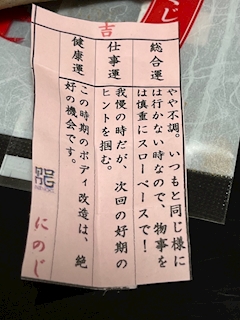 吉
総合運
やや不調。いつもと同じ様に
は行かない時なので、物事を
は慎重にスローペースで!
仕事運
我慢の時だが、次回の好期の
ヒントを掴む。
健康運
この時期のボディ改造は、絶
好の機会です。
にのじ